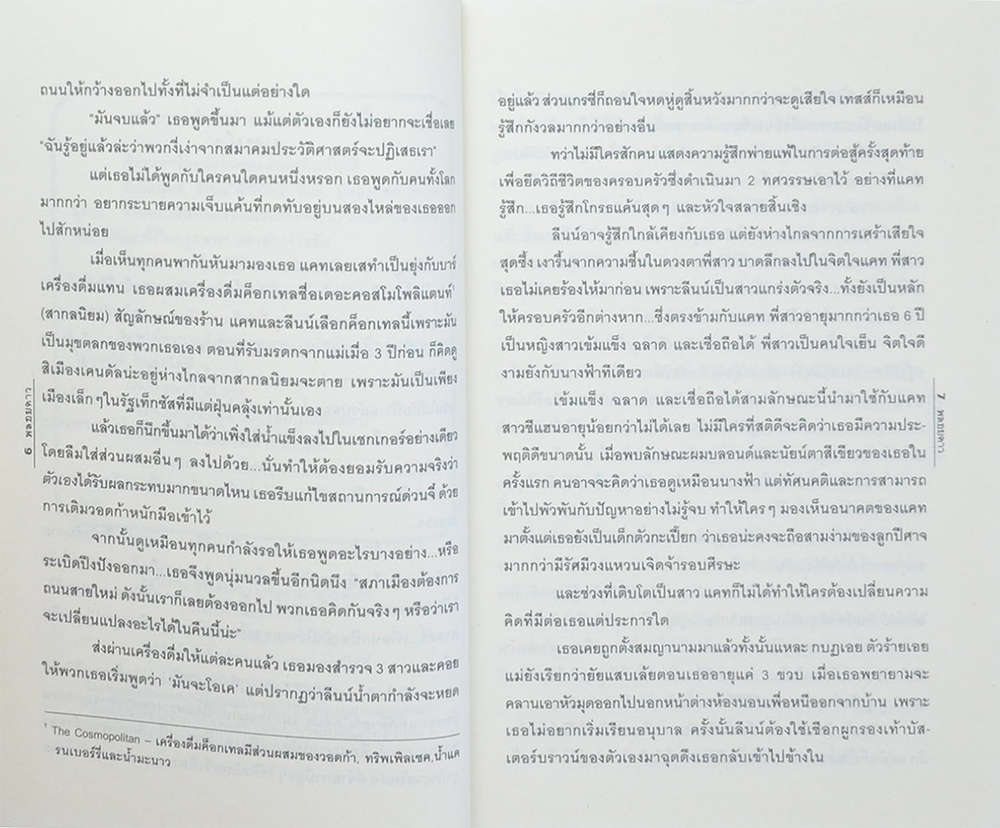 ถนนให้กว้างออกไปทั้งที่ไม่จำเป็นแต่อย่างใด
"มันจบแล้ว" เธอพูดขึ้นมา แม้แต่ตัวเองก็ยังไม่อยากจะเชื่อเลย
"ฉันรู้อยู่แล้วล่ะว่าพวกงี่เง่าจากสมาคมประวัติศาสตร์จะปฏิเสธเรา"
แต่เธอไม่ได้พูดกับใครคนใดคนหนึ่งหรอก เธอพูดกับคนทั้งโลก
มากกว่า อยากระบายความเจ็บแค้นที่กดทับอยู่บนสองไหล่ของเธอออก
ไปสักหน่อย
เมื่อเห็นทุกคนพากันหันมามองเธอ แคทเลยเสทำเป็นยุ่งกับบาร์
เครื่องดื่มแทน เธอผสมเครื่องดื่มค็อกเทลชื่อเดอะคอสโมโพลิแตนท์¹
(สากลนิยม) สัญลักษณ์ของร้าน แคทและลีนน์เลือกค็อกเทลนี้เพราะมัน
เป็นมุขตลกของพวกเธอเอง ตอนที่รับมรดกจากแม่เมื่อ 3 ปีก่อน ก็คิดดู
สิเมืองเคนดัลน่ะอยู่ห่างไกลจากสากลนิยมจะตาย เพราะมันเป็นเพียง
เมืองเล็กๆในรัฐเท็กซัสที่มีแต่ฝุ่นคลุ้งเท่านั้นเอง
แล้วเธอก็นึกขึ้นมาได้ว่าเพิ่งใส่น้ำแข็งลงไปในเชกเกอร์อย่างเดียว
โดยลืมใส่ส่วนผสมอื่นๆ ลงไปด้วย...นั่นทำให้ต้องยอมรับความจริงว่า
ตัวเองได้รับผลกระทบมากขนาดไหน เธอรีบแก้ไขสถานการณ์ด่วนจี๋ ด้วย
การเติมวอดก้าหนักมือเข้าไว้
จากนั้นดูเหมือนทุกคนกำลังรอให้เธอพูดอะไรบางอย่าง...หรือ
ระเบิดปึงปังออกมา...เธอจึงพูดนุ่มนวลขึ้นอีกนิดนึง "สภาเมืองต้องการ
ถนนสายใหม่ ดังนั้นเราก็เลยต้องออกไป พวกเธอคิดกันจริงๆ หรือว่าเรา
จะเปลี่ยนแปลงอะไรได้ในคืนนี้น่ะ"
ส่งผ่านเครื่องดื่มให้แต่ละคนแล้ว เธอมองสำรวจ 3 สาวและคอย
ให้พวกเธอเริ่มพูดว่า 'มันจะโอเค' แต่ปรากฏว่าลีนน์น้ำตากำลังจะหยด
¹ The Cosmopolitan – เครื่องดื่มค็อกเทลมีส่วนผสมของวอดก้า, ทริพเพิลเซค,น้ำแค
รนเบอร์รี่และน้ำมะนาว
6 พลอยดาว
อยู่แล้ว ส่วนเกรซี่ก็ถอนใจหดหู่ดูสิ้นหวังมากกว่าจะดูเสียใจ เทสส์ก็เหมือน
รู้สึกกังวลมากกว่าอย่างอื่น
ทว่าไม่มีใครสักคน แสดงความรู้สึกพ่ายแพ้ในการต่อสู้ครั้งสุดท้าย
เพื่อยึดวิถีชีวิตของครอบครัวซึ่งดำเนินมา 2 ทศวรรษเอาไว้ อย่างที่แคท
รู้สึก...เธอรู้สึกโกรธแค้นสุดๆ และหัวใจสลายสิ้นเชิง
ลีนน์อาจรู้สึกใกล้เคียงกับเธอ แต่ยังห่างไกลจากการเศร้าเสียใจ
สุดซึ้ง เงารื้นจากความชื้นในดวงตาพี่สาว บาดลึกลงไปในจิตใจแคท พี่สาว
เธอไม่เคยร้องไห้มาก่อน เพราะลีนน์เป็นสาวแกร่งตัวจริง...ทั้งยังเป็นหลัก
ให้ครอบครัวอีกต่างหาก...ซึ่งตรงข้ามกับแคท พี่สาวอายุมากกว่าเธอ 6 ปี
เป็นหญิงสาวเข้มแข็ง ฉลาด และเชื่อถือได้ พี่สาวเป็นคนใจเย็น จิตใจดี
งามยังกับนางฟ้าทีเดียว
เข้มแข็ง ฉลาด และเชื่อถือได้สามลักษณะนี้นำมาใช้กับแคท
สาวซีแฮนอายุน้อยกว่าไม่ได้เลย ไม่มีใครที่สติดีจะคิดว่าเธอมีความประ-
พฤติดีขนาดนั้น เมื่อพบลักษณะผมบลอนด์และนัยน์ตาสีเขียวของเธอใน
ครั้งแรก คนอาจจะคิดว่าเธอดูเหมือนนางฟ้า แต่ทัศนคติและการสามารถ
เข้าไปพัวพันกับปัญหาอย่างไม่รู้จบ ทำให้ใครๆ มองเห็นอนาคตของแคท
มาตั้งแต่เธอยังเป็นเด็กตัวกะเปี๊ยก ว่าเธอน่ะคงจะถือสามง่ามของลูกปีศาจ
มากกว่ามีรัศมีวงแหวนเจิดจ้ารอบศีรษะ
และช่วงที่เติบโตเป็นสาว แคทก็ไม่ได้ทำให้ใครต้องเปลี่ยนความ
คิดที่มีต่อเธอแต่ประการใด
เธอเคยถูกตั้งสมญานามมาแล้วทั้งนั้นแหละ กบฏเอย ตัวร้ายเอย
แม่ยังเรียกว่ายัยแสบเลยตอนเธออายุแค่ 3 ขวบ เมื่อเธอพยายามจะ
คลานเอาหัวมุดออกไปนอกหน้าต่างห้องนอนเพื่อหนีออกจากบ้าน เพราะ
เธอไม่อยากเริ่มเรียนอนุบาล ครั้งนั้นลีนน์ต้องใช้เชือกผูกรองเท้าบัส-
เตอร์บราวน์ของตัวเองมาฉุดดึงเธอกลับเข้าไปข้างใน
7 พลอยดาว